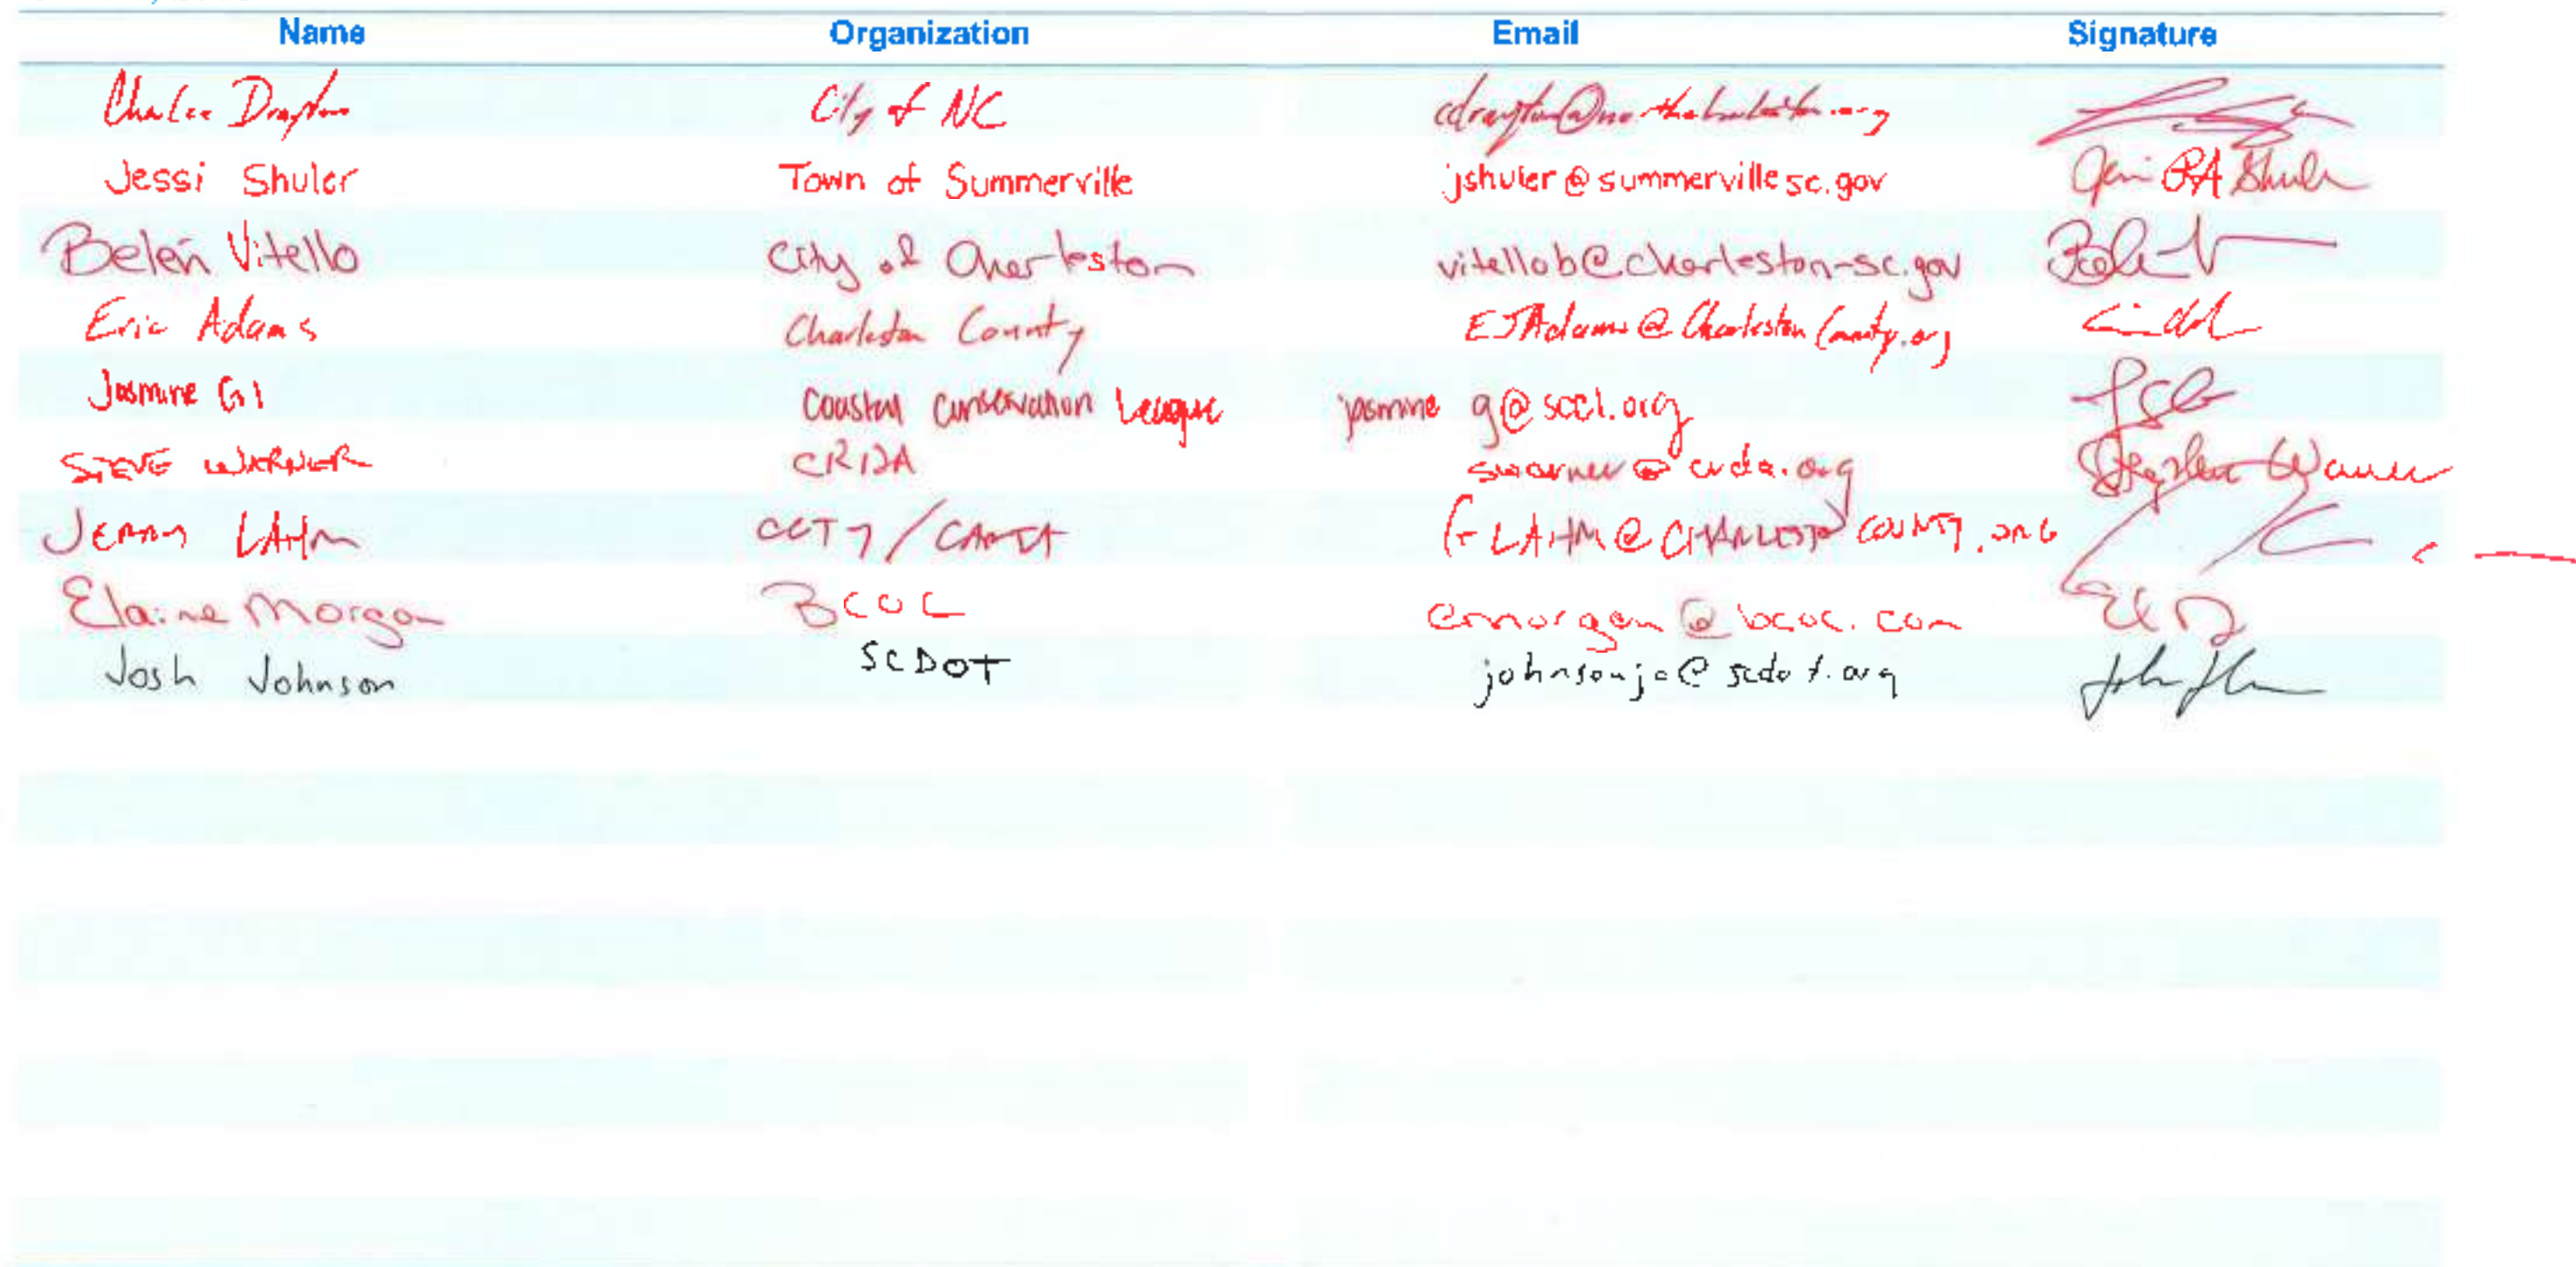 Name Organization Email Signature
Charles Drayton City of NC cdrayton@northcharleston.org
Jessi Shuler Town of Summerville jshuler@summervillesc.gov
Belén Vitello City of Charleston vitellob@charleston-sc.gov
Eric Adams Charleston County EJAdams@CharlestonCounty.org
Jasmine Gil Coastal Conservation League jasmine g@scccl.org
STEVE WARNER CRDA swarner@crda.org
JERRY LAHM CCTY/CARTA GLAHM@CHARLESTONCOUNTY.ORG
Elaine Morgan BCOC emorgan@bcoc.com
Josh Johnson SCDOT johnsonjc@scdot.org